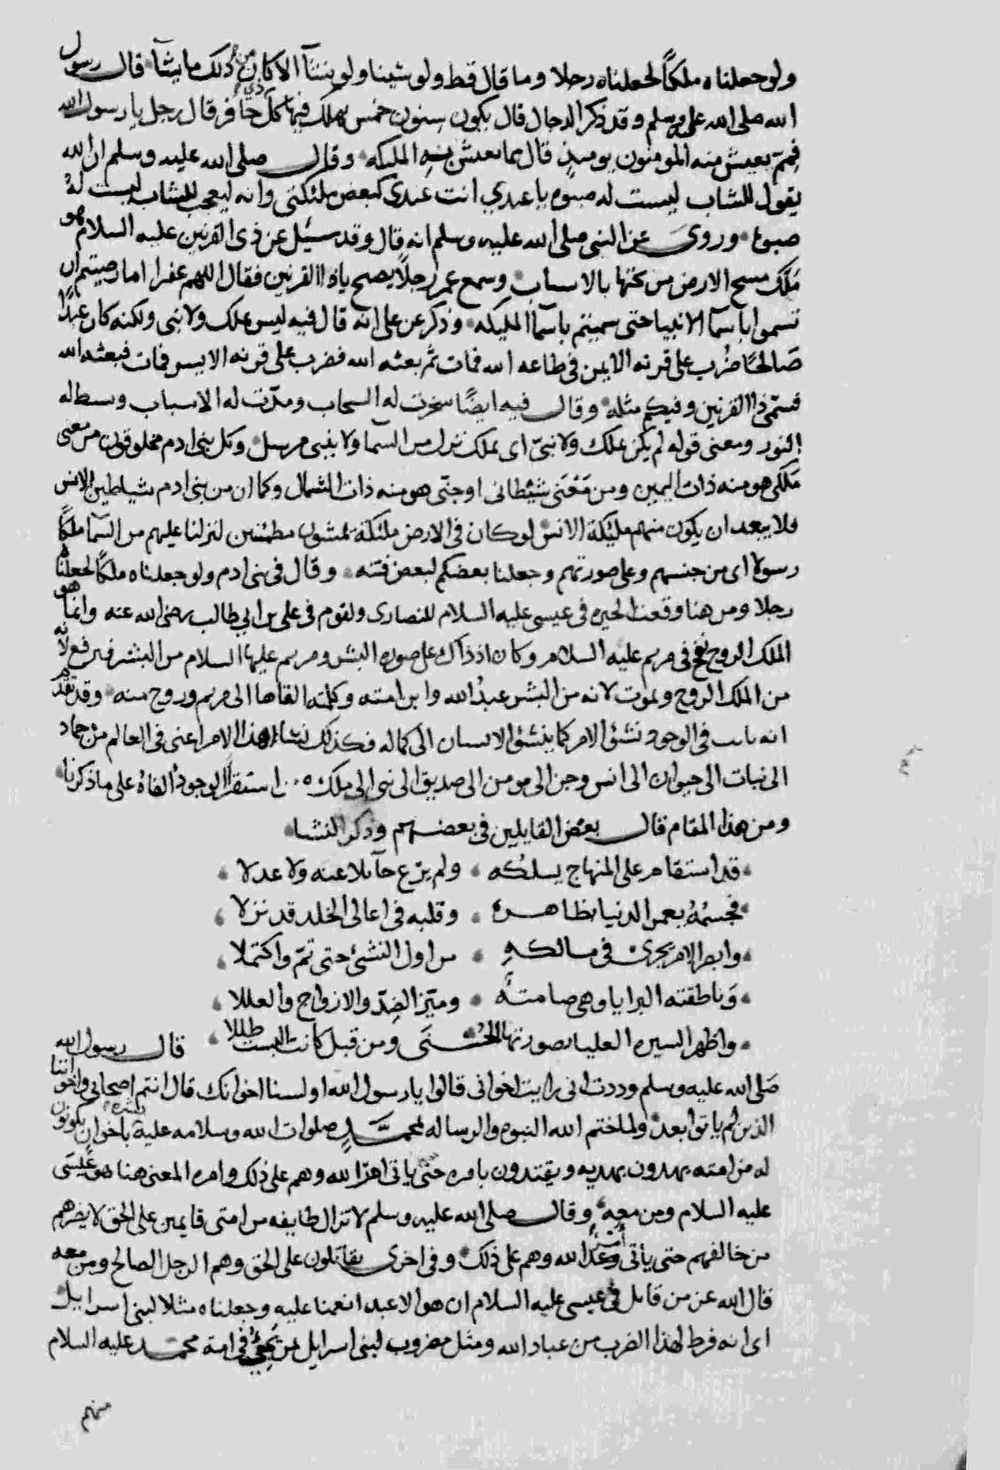 ولو جعلناه ملكاً لجعلناه رجلا وما قال قط ولو شينا ولو يشآ الا كان من ذلك ما يشآ قال رسول
الله صلى الله عليه وسلم وقد ذكر الدجال قال يكون سنون خمس يهلك فيها كل ذي حافر قال رجل يا رسول الله
فبم يعيش منه المومنون يوميذ قال بما يعيش به المليكه وقال صلى الله عليه وسلم ان الله
يقول للشاب ليست له صبوه يا عبدي انت عندي كبعض ملئكتي وانه ليعجب للشاب ليست له
صبوة وروى عن النبى صلى الله عليه وسلم انه قال وقد سيل عن ذى القرنين عليه السلام هو
ملك مسح الارض من تحتها بالاسباب وسمع عمر رجلاً يصيح ياذا القرنين فقال اللهم غفرا اما رضيتم ان
تسموا باسمآ الانبيا حتى سميتم باسمآ المليكه وذكر عن على انه قال فيه ليس بملك ولا نبى ولكنه كان عبداً
صالحًا ضُرب على قرنه الايمن فى طاعه الله فمات ثم بعثه الله فضرب على قرنه الايسر فمات فبعثه الله
فسمى ذا القرنين وفيكم مثله وقال فيه ايضًا سخرت له السحاب ومدّت له الاسباب وبسط له
النور ومعنى قوله لم يكن بملك ولا نبىّ اى بملك نزل من السمآ ولا بنبى مرسل وكل بنى ادم مخلوقون من معنى
ملكى هو منه ذات اليمين ومن مَعْنى شيْطانى او جنّى هو منه ذات الشمال وكما ان من بنى ادم شياطين الانس
فلا يبعد ان يكون منهم مليكة الانس لو كان فى الارض ملئكة يمشون مطمئنين لنزلنا عليهم من السمآ ملكاً
رسولا اى من جنسهم وعلى صورتهم وجعلنا بعضكم لبعض فتنه وقال فى بنى ادم ولو جعلناه ملكاً لجعلناه
رجلا ومن هنا وقعت الحيره فى عيسى عليه السلام للنصارى ولقوم فى على بن ابى طالب رضى الله عنه وانما هو
الملك الروح نفخ فى مريم عليه السلام وكان اذ ذاك على صوره البشر ومريم عليها السلام من البشر فمن رفع لانه
من الملك الروح ويموت لانه من البشر عبدُ الله وابن امته وكلمته القاها الى مريم وروح منه وقد تقدم
انه باب فى الوجود نشئ الامر كما ينشئ الانسان الى كماله فكذلك نشا هذا الامر اعنى فى العالم من جماد
الى نبات الى حيوان الى انس وجن الى مومن الى صديق الى نبى الى ملك استقرأ الوجود الفاه على ما ذكرنا
ومن هذا المقام قال بعض القايلين فى بعضهم وذكر النشا
قد استقام على المنهاج يسلكه ولم يزغ حآيلا عنه ولا عدلا
فجسمُهُ يعمر الدنيا بظاهره وقلبه فى اعالى الخلد قد نزلا
الامر يجرى فى مسالكه من اول النشئ حتى تمّ واكتملا
وناطقته البرايا وهى صامتة وميّز الضدّ والازواج والعللا
واظهر السيره العليا بصورتها الحسْنَى ومن قبل كانت طللا قال رسول الله
صلى الله عليه وسلم وددت انى رايت اخوانى قالوا يا رسول الله اولسنا اخوانك قال انتم اصحابى واخواننا
الذين لم ياتوا بعد ولما ختم الله النبوه والرساله لمحمد صلوات الله وسلامه عليه باخوان يكونون
له من امته يهدون بهديه ويقتدون بامره حتى ياتى امر الله وهم على ذلك وامره المعنى هنا هو عيسى
عليه السلام ومن معه وقال صلى الله عليه وسلم لا تزال طايفه من امتى قايمين على الحق لا يضرهم
من خالفهم حتى ياتى وعد الله وهم على ذلك وفى اخرى يقاتلون على الحق وهم الرجل الصالح ومن معه
قال الله عز من قايل فى عيسى عليه السلام ان هو الا عبد انعمنا عليه وجعلناه مثلا لبنى اسرايل
اى انه فرط لهذا الضرب من عباد الله ومثل مضروب لبنى اسرايل بمن يجئ فى امة محمد عليه السلام
منهم